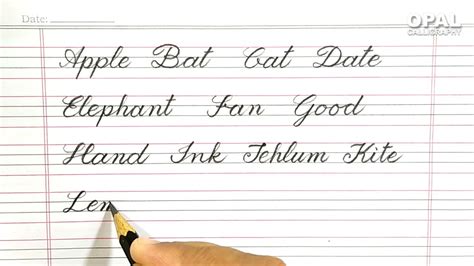 Date:
OPAL
CALLIGRAPHY
Apple Bat Cat Date
Elephant Fan Good
Hand Ink Jehlum Kite
Lem